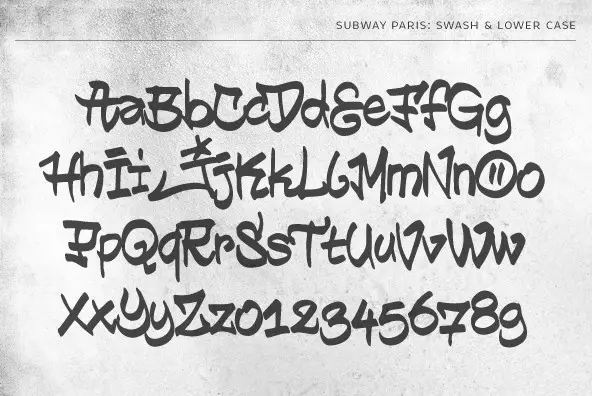 SUBWAY PARIS: SWASH & LOWER CASE
AaBbCcDdEeFfGg
HhIiJjKkLlMmNnOo
PpQqRrSsTtUuVvWw
XxYyZz0123456789